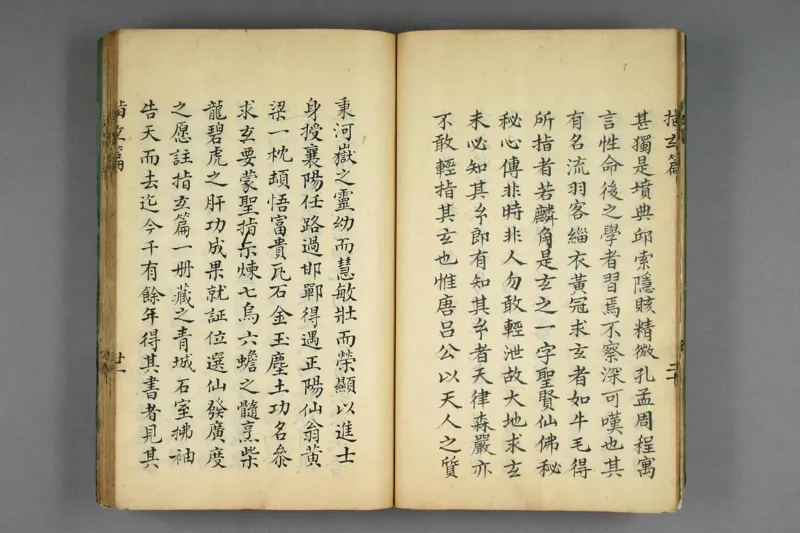 指玄篇
甚獨是墳典邱索隱賅精微孔孟周程寓
言性命後之學者習焉不察深可嘆也其
有名流羽客緇衣黃冠求玄者如牛毛得
所指者若麟角是玄之一字聖賢仙佛秘
秘心傳非時非人勿敢輕泄故大地求玄
未必知其𢆯即有知其𢆯者天律森嚴亦
不敢輕指其玄也惟唐呂公以天人之質
秉河嶽之靈幼而慧敏壯而榮顯以進士
身授襄陽任路過邯鄲得遇正陽仙翁黃
梁一枕頓悟富貴瓦石金玉塵土功名叅
求玄要蒙聖指示煉七烏六蟾之髓烹柴
龍碧虎之肝功成果就証位選仙發廣度
之愿註指玄篇一册藏之青城石室拂袖
告天而去迄今千有餘年得其書者見其
指玄篇
廿一